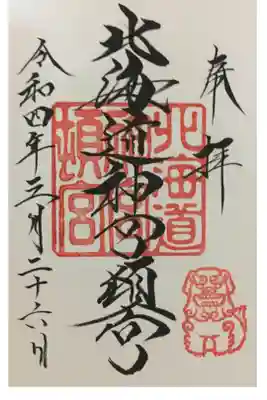 奉拝
北海道神宮頓宮
令和四年三月二十六日
北海道
頓宮